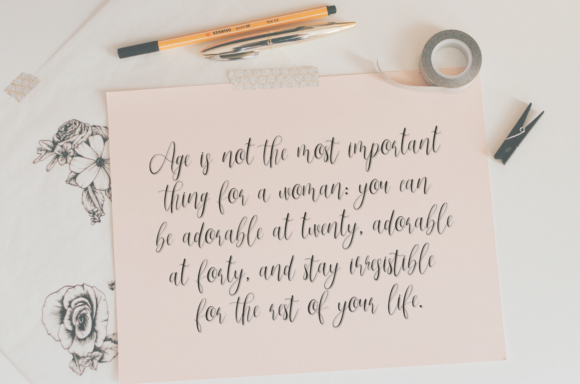 Age is not the most important
thing for a woman: you can
be adorable at twenty, adorable
at forty, and stay irresistible
for the rest of your life.